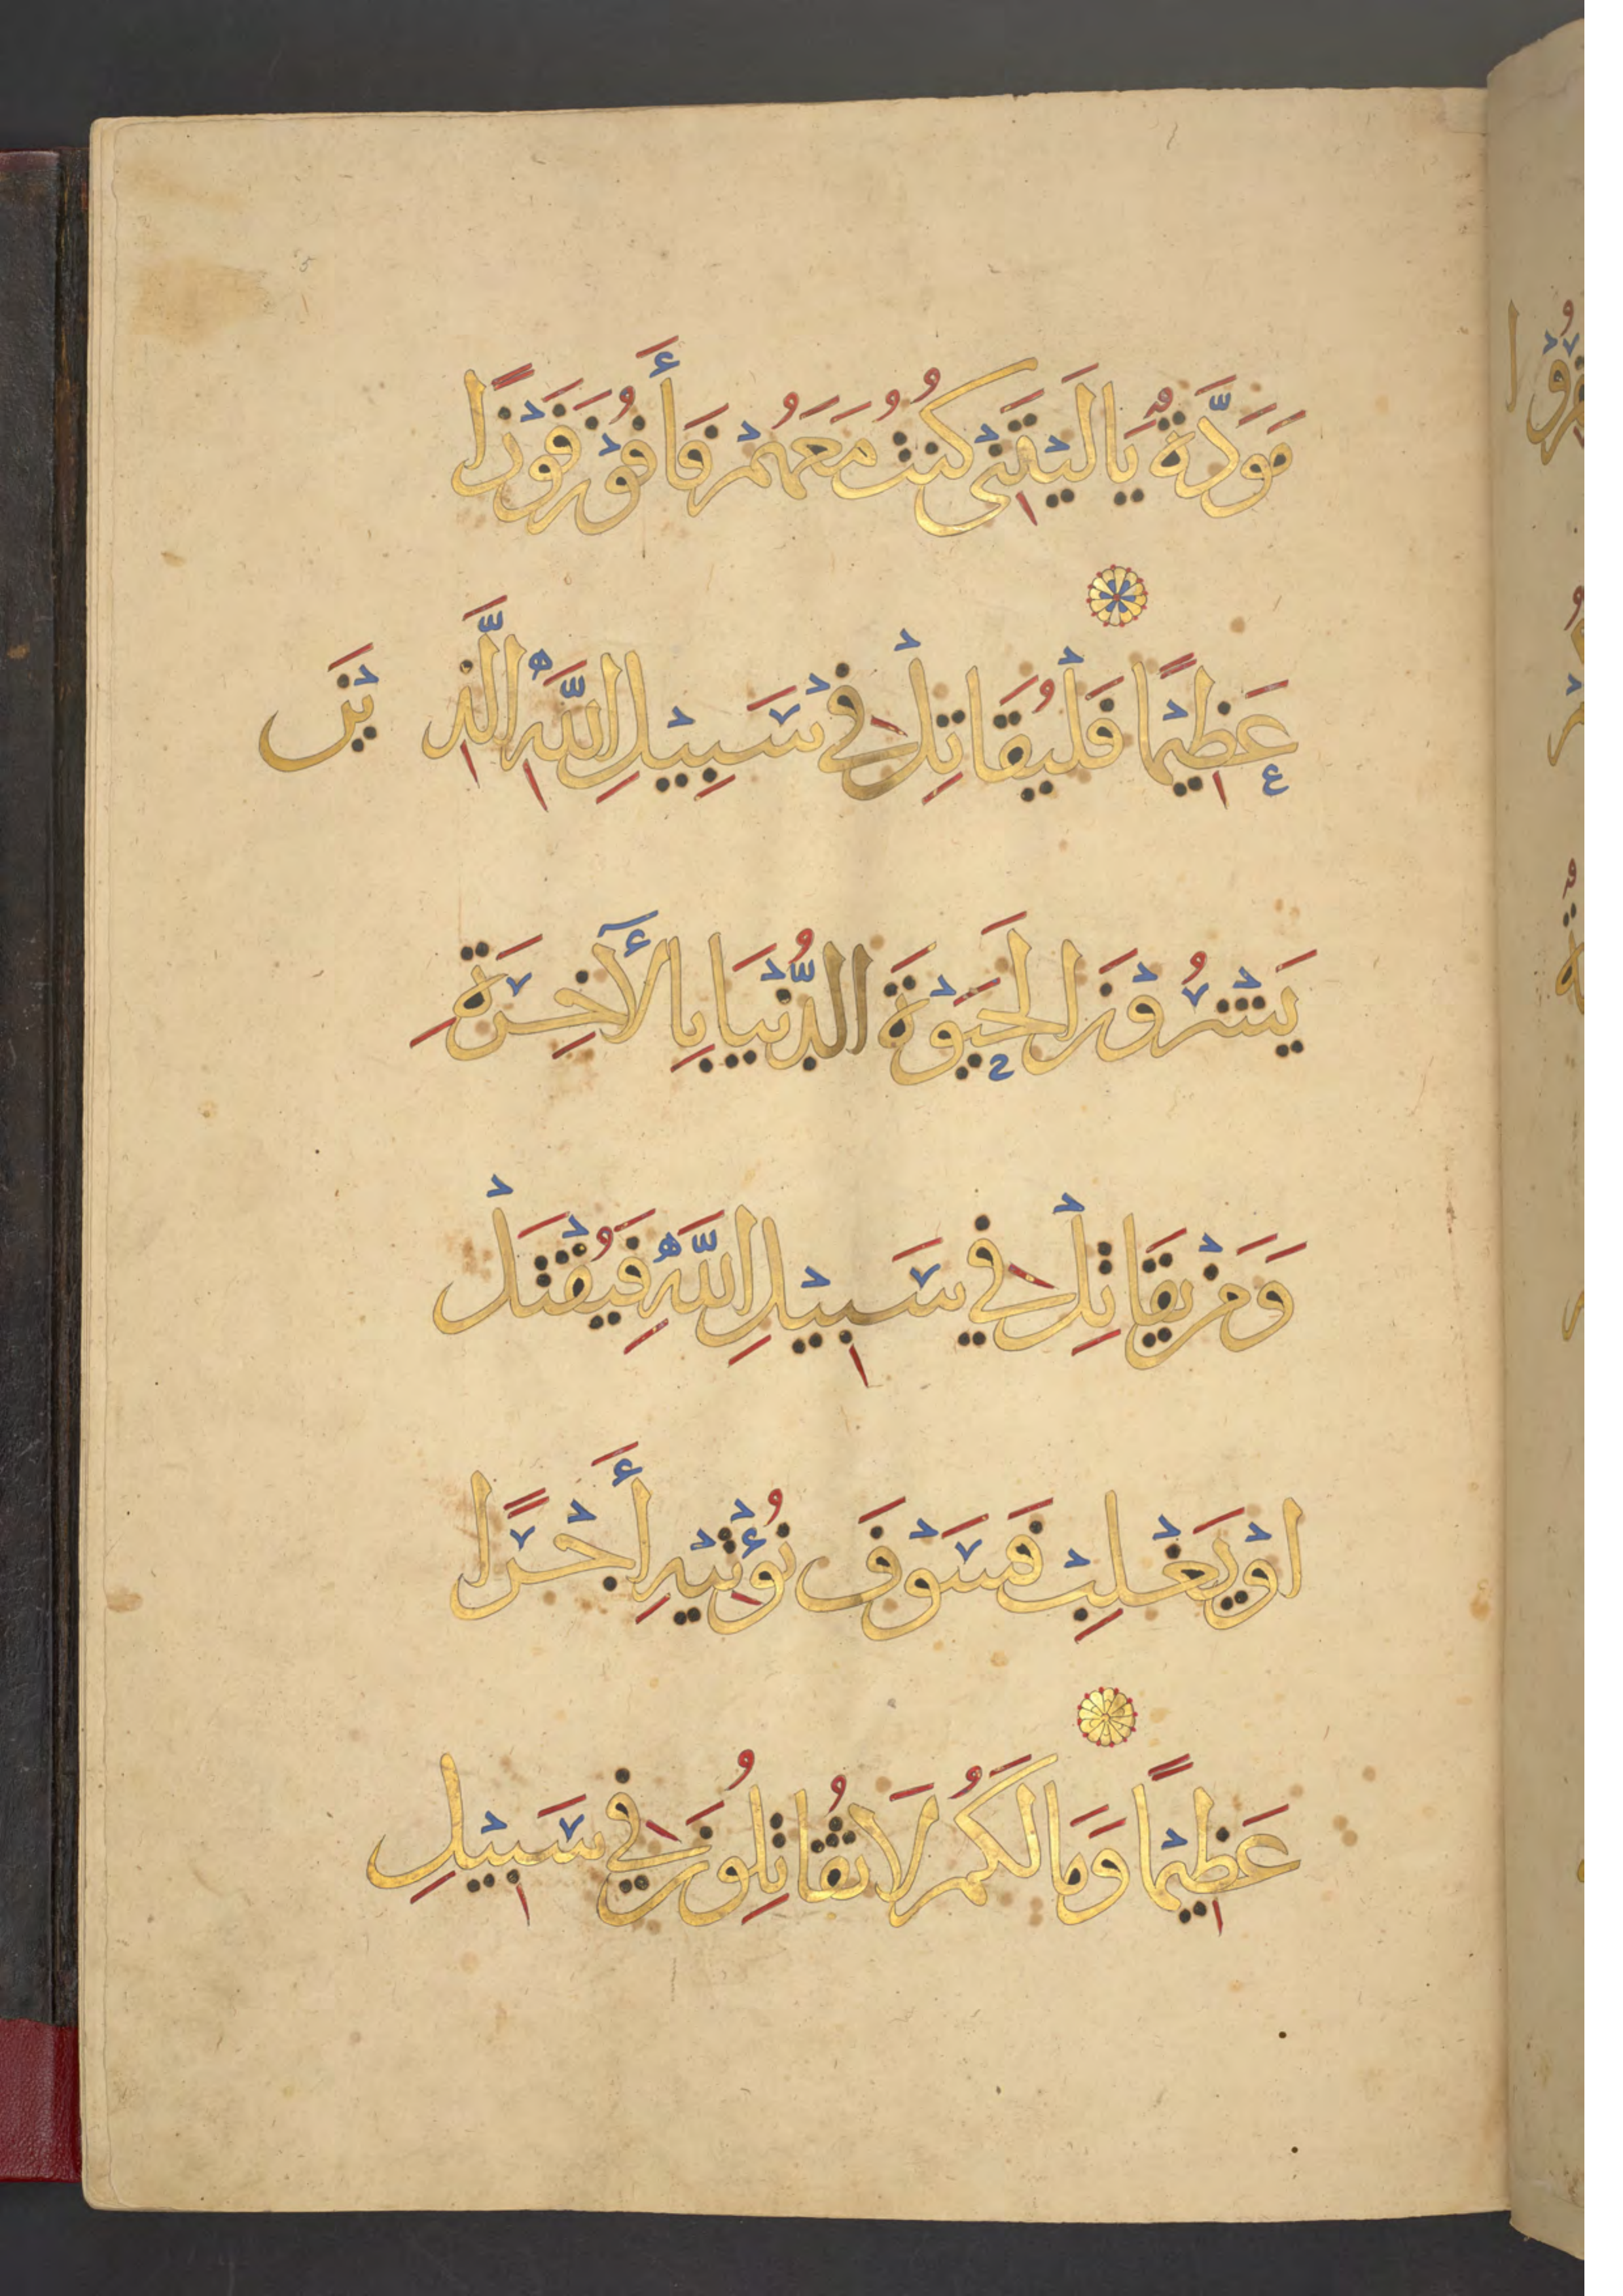 مَوَدَّةٌ يَا لَيْتَنِى كُنتُ مَعَهُمْ فَأَفُوْزَ فَوْزًا
عَظِيْمًا فَلْيُقَاتِلْ فِي سَبِيْلِ اللَّهِ الَّذِيْنَ
يَشْرُوْنَ الْحَيَوْةَ الدُّنْيَا بِالْأَخِرَةِ
وَمَنْ يقَاتِلْ فِي سَبِيْلِ اللَّهِ فَيُقْتَلْ
اوْ يَغْلِبْ فَسَوْفَ نُؤْتِيْهِ أَجْرًا
عَظِيْمًا وَمَا لَكُمُ لَا تُقَاتِلُونَ فِي سَبِيْلِ
5